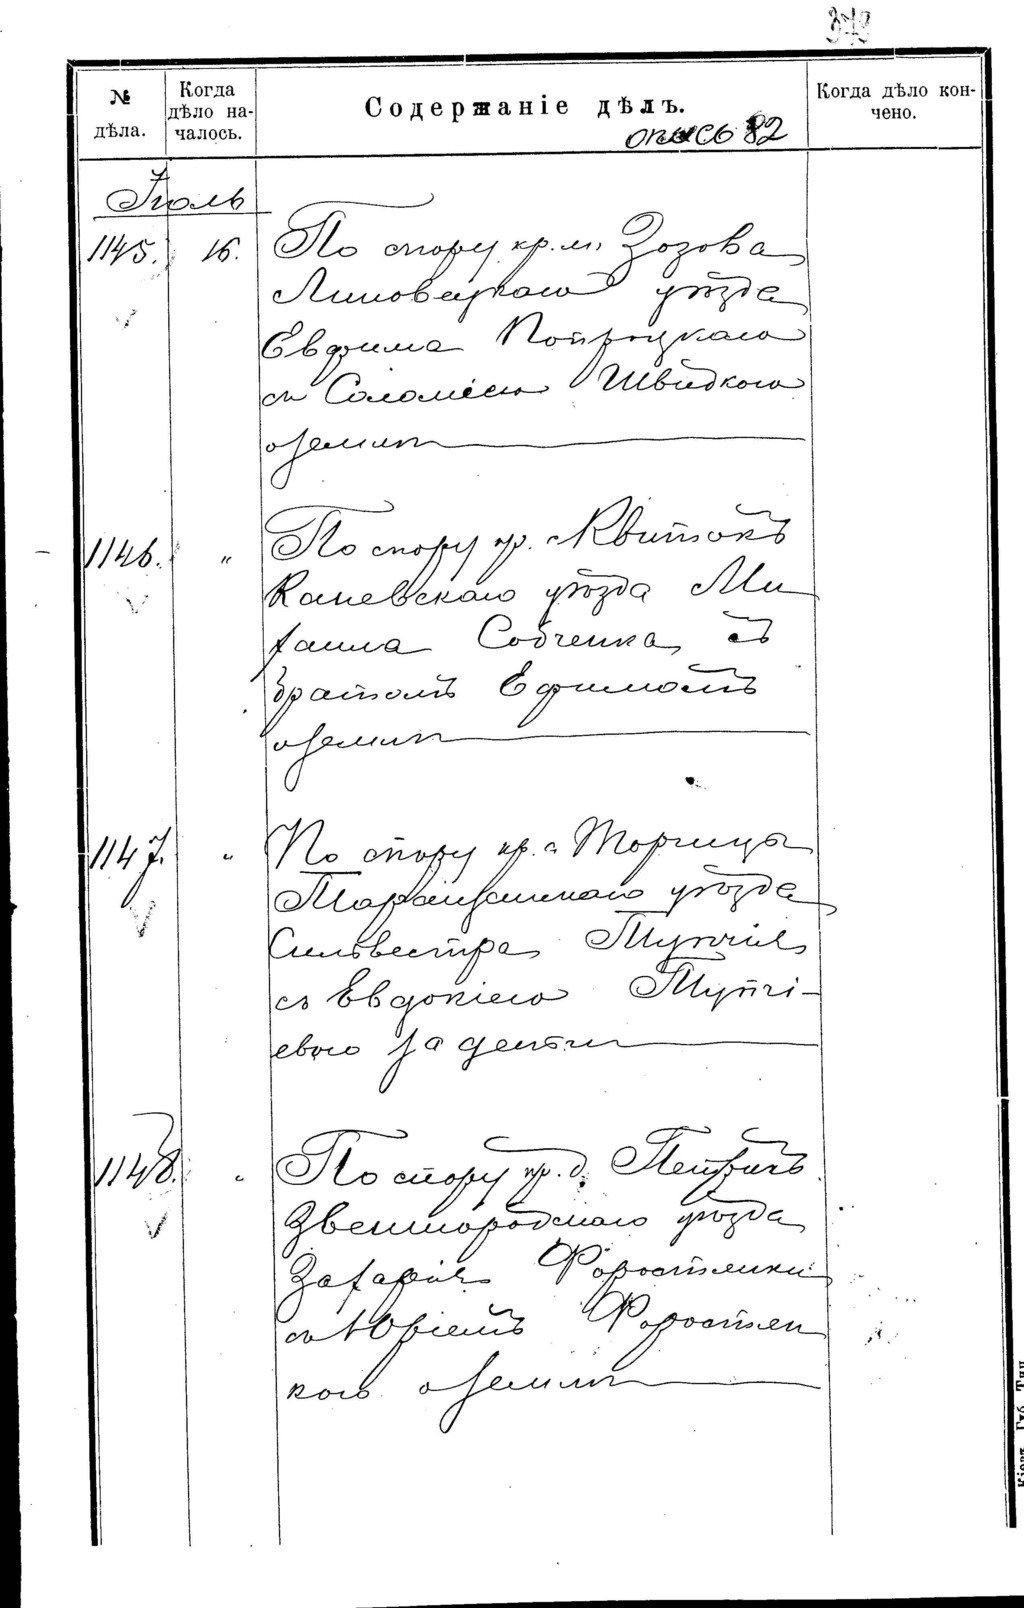 373
№ дѣла.
Когда дѣло на-
чалось.
Содержаніе дѣлъ.
Когда дѣло кон-
чено.
опись 82
Іюль
1145. 16. По спору кр. м. Зозова
Липовецкаго уѣзда
Евфима
съ Соломіею Швидкою
о землѣ
1146. " По спору кр. с. Квитокъ
Каневскаго уѣзда Ми
хаила Собченка съ
братомъ Ефимомъ
о землѣ
1147. " По спору кр. с. Торчицы
Таращанскаго уѣзда
Сильвестра Тупчія
съ Евдокіею Тупчі-
евою за деньги
1148. " По спору кр. д. Петричъ
Звенигородскаго уѣзда
Захарія Форостенки
съ Юріемъ Форостен
кою о землѣ
Кіевъ. Губ. Тип.